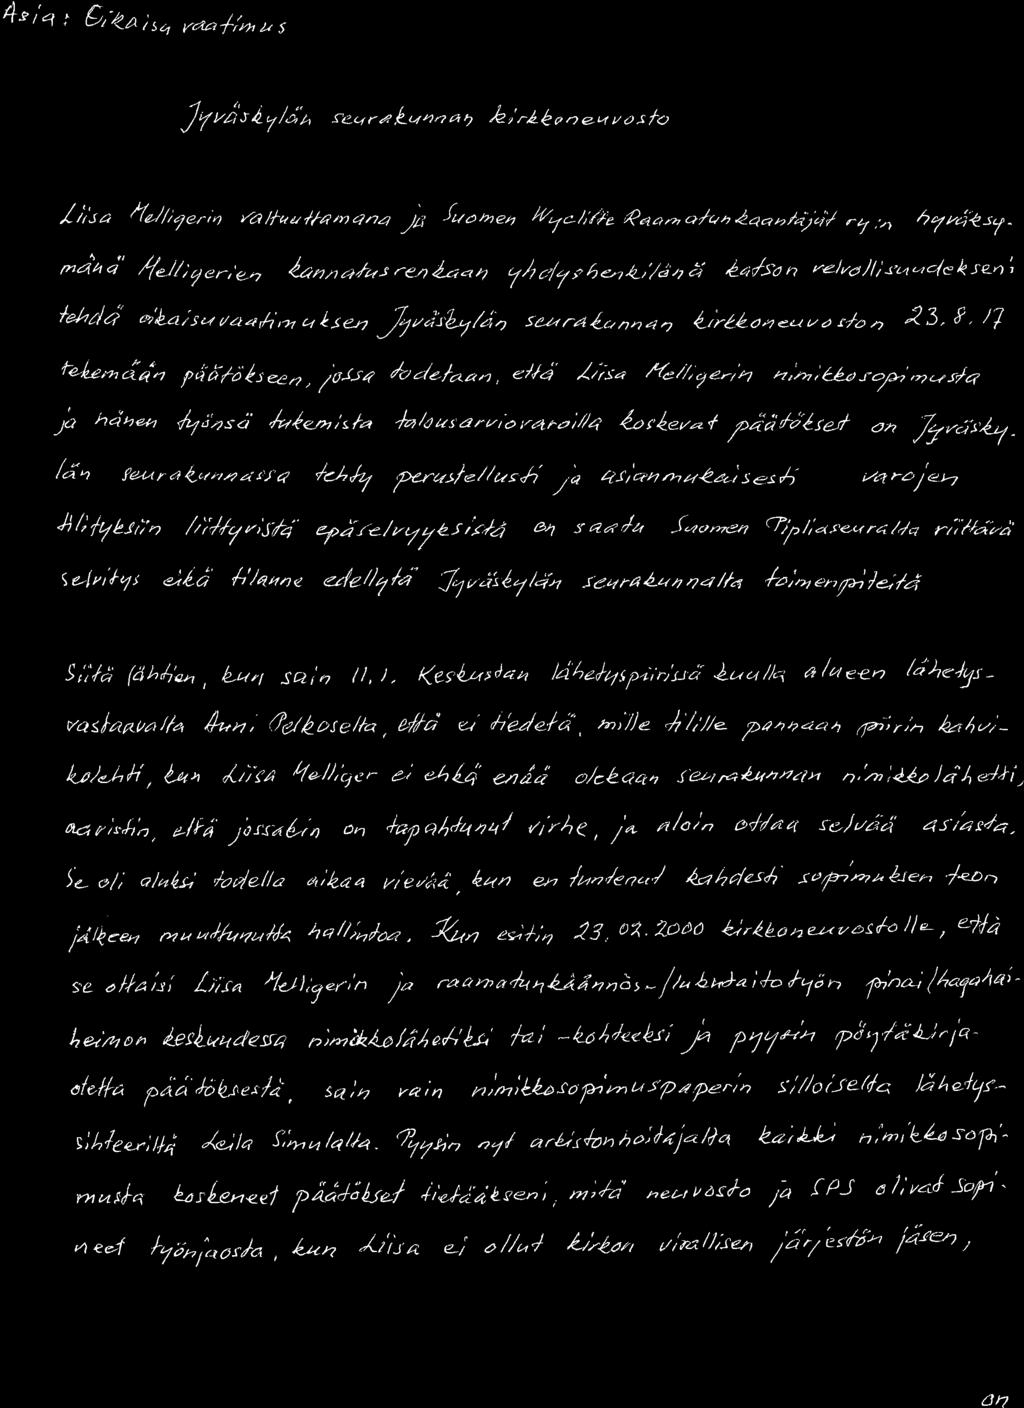 Asia: Oikaisuvaatimus
Jyväskylän seurakunnan kirkkoneuvosto
Liisa Melligerin valtuuttamana ja Suomen Wycliffe Raamatunkääntäjät ry:n hyväksy-
mänä Melligerien kannatusrenkaan yhdyshenkilönä katson velvollisuudekseni
tehdä oikaisuvaatimuksen Jyväskylän seurakunnan kirkkoneuvoston 23.8.17
tekemään päätökseen, jossa todetaan, että Liisa Melligerin nimikkosopimusta
ja hänen työnsä tukemista talousarviovaroilla koskevat päätökset on Jyväsky-
län seurakunnassa tehty perustellusti ja asianmukaisesti varojen
tilityksiin liittyvistä epäselvyyksistä on saatu Suomen Pipliaseuralta riittävä
selvitys eikä tilanne edellytä Jyväskylän seurakunnalta toimenpiteitä
Siitä lähtien, kun sain 11.1. Keskustan lähetyspiirissä kuulla alueen lähetys-
vastaavalta Anni Pelkoselta, että ei tiedetä, mille tilille pannaan piirin kahvi-
kolehti, kun Liisa Melliger ei ehkä enää olekaan seurakunnan nimikkolähetti,
aavistin, että jossakin on tapahtunut virhe, ja aloin ottaa selvää asiasta.
Se oli aluksi todella aikaa vievää, kun en tuntenut kahdesti sopimuksen teon
jälkeen muuttunutta hallintoa. Kun esitin 23.02.2000 kirkkoneuvostolle, että
se ottaisi Liisa Melligerin ja raamatunkäännös-/lukutaitotyön pinai/hagahai-
heimon keskuudessa nimikkolähetiksi tai -kohteeksi ja pyysin pöytäkirja-
otetta päätöksestä, sain vain nimikkosopimuspaperin silloiselta lähetys-
sihteeriltä Leila Simulalta. Pyysin nyt arkistonhoitajalta kaikki nimikkosopi-
musta koskeneet päätökset tietääkseni, mitä neuvosto ja SPS olivat sopi-
neet työnjaosta, kun Liisa ei ollut kirkon virallisen järjestön jäsen,
on